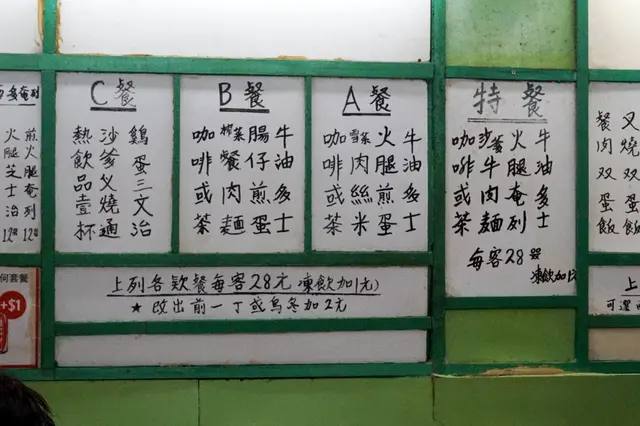 叉燒双蛋飯
餐肉双蛋飯
特餐
牛油多士
火腿奄列
沙爹牛肉麵
咖啡或茶
每客28元
凍飲加1元
A餐
牛油多士
火腿煎蛋
雪菜肉絲米
咖啡或茶
B餐
牛油多士
腸仔煎蛋
榨菜餐肉麵
咖啡或茶
C餐
鷄蛋三文治
沙爹叉燒通
熱飲品壹杯
多奄列
煎火腿奄列12元
火腿芝士治12元
上列各欵餐每客28元 凍飲加1元)
★改出前一丁或烏冬加2元
上
可選
何套餐
+$1